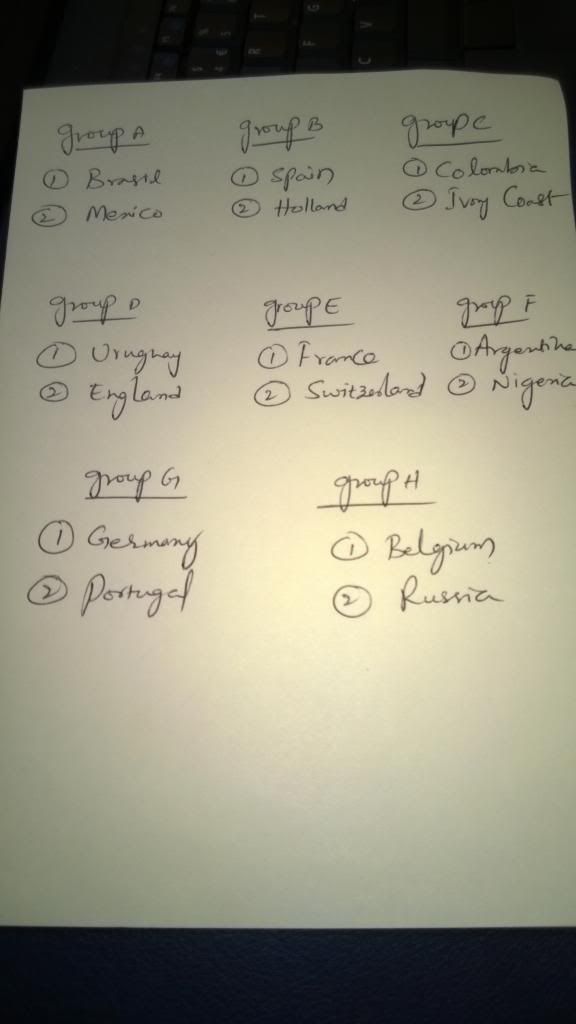 group A
① Brasil
② Mexico
group B
① Spain
② Holland
group C
① Colombia
② Ivory Coast
group D
① Uruguay
② England
group E
① France
② Switzerland
group F
① Argentina
② Nigeria
group G
① Germany
② Portugal
group H
① Belgium
② Russia